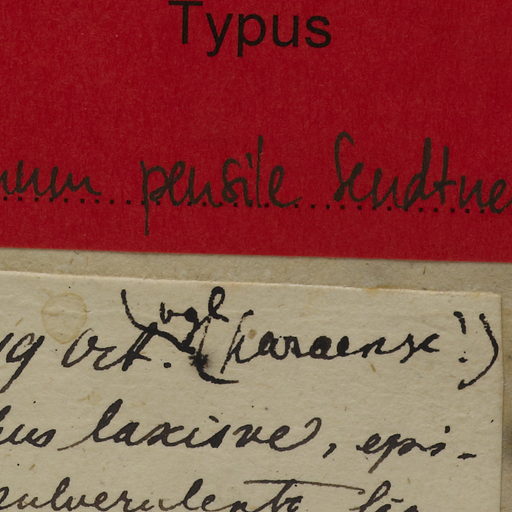 Typus
num pensile Sendtne
19 Oct. (vgl (paraense!)
bus laxisve, epi-
pulverulento